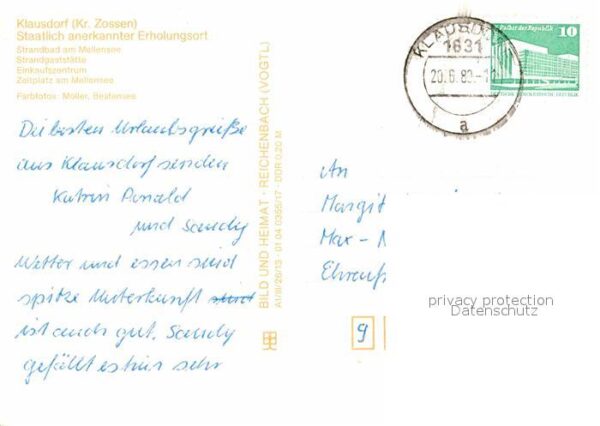 Klausdorf (Kr. Zossen)
Staatlich anerkannter Erholungsort
Strandbad am Mellensee
Strandgaststätte
Einkaufszentrum
Zeltplatz am Mellensee
Farbfotos: Möller, Bestensee
Die besten Urlaubsgrüße
aus Klausdorf senden
Katrin Ronald
und Sandy
Wetter und essen sind
spitze Unterkunft sind
ist auch gut. Sandy
gefällt es hier sehr
BILD UND HEIMAT · REICHENBACH (VOGTL)
AI/III/26/13 · 01 04 0355/17 · DDR 0,20 M
KLAUSDO
1631
20.6.80-11
a
Palast der Republik
10
DEUTSCHE DEMOKRATISCHE REPUBLIK
An
Margit
Max -
Ehrenf
privacy protection
Datenschutz
9